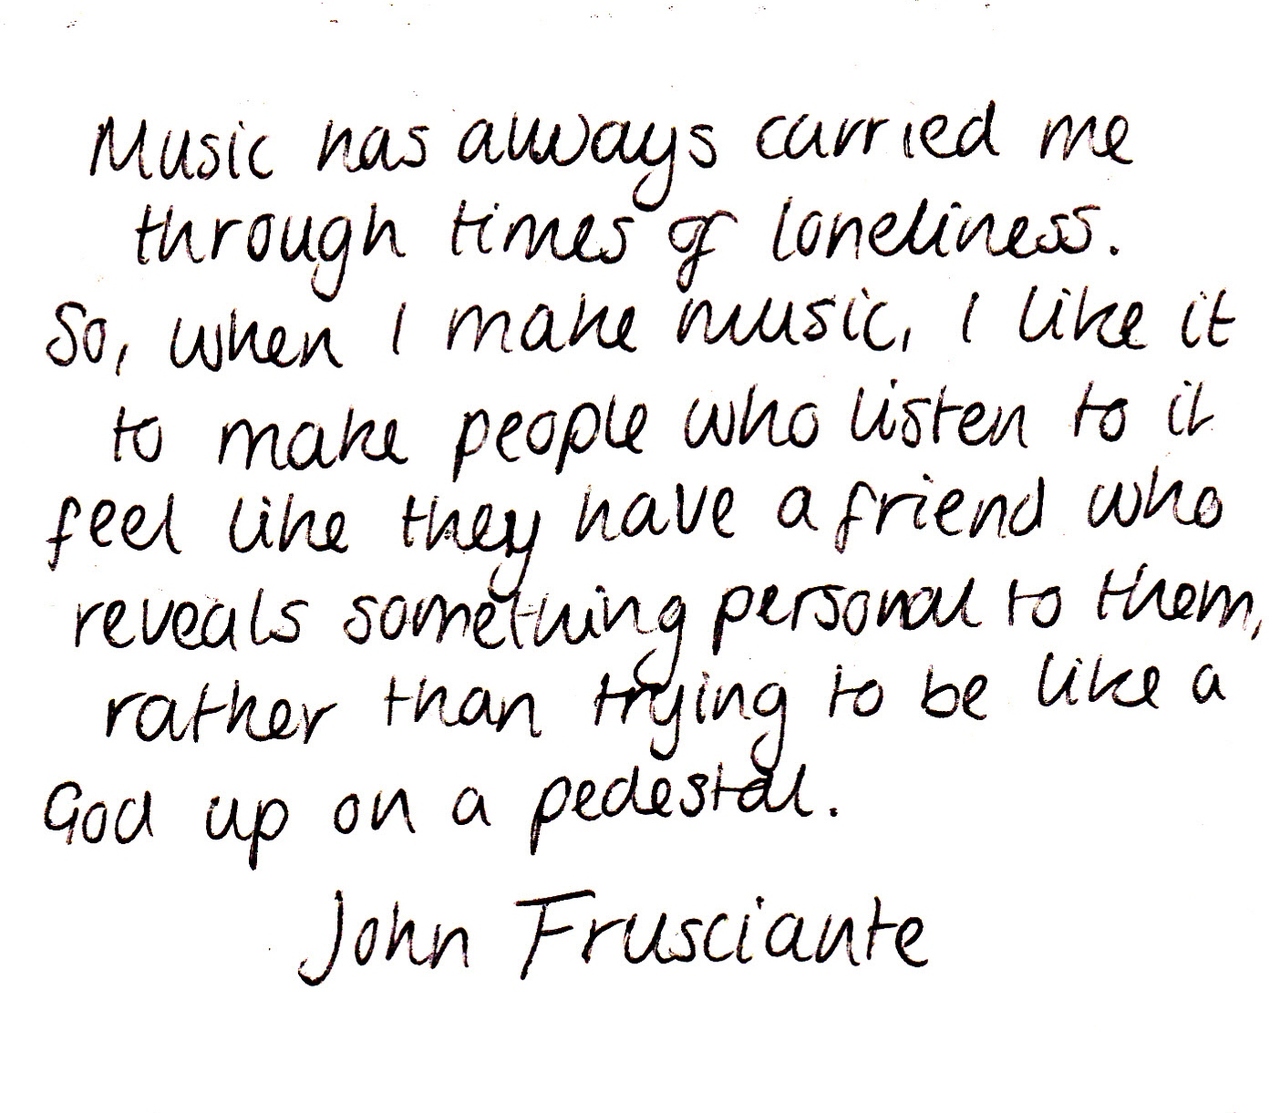 Music has always carried me
through times of loneliness.
So, when I make music, I like it
to make people who listen to it
feel like they have a friend who
reveals something personal to them,
rather than trying to be like a
God up on a pedestal.
John Frusciante